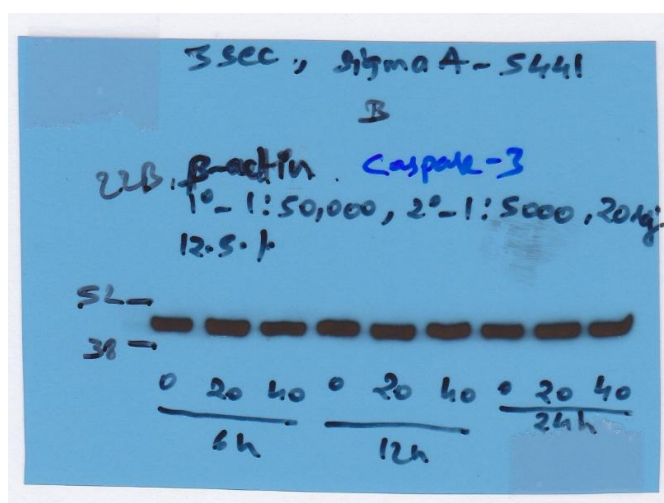 3 sec, sigma A-5441
B
22B. β-actin. Caspase-3
1°-1:50,000, 2°-1:5000, 20ug.
12.5%
52-
38-
0 20 40 0 20 40 0 20 40
6h 12h 24h